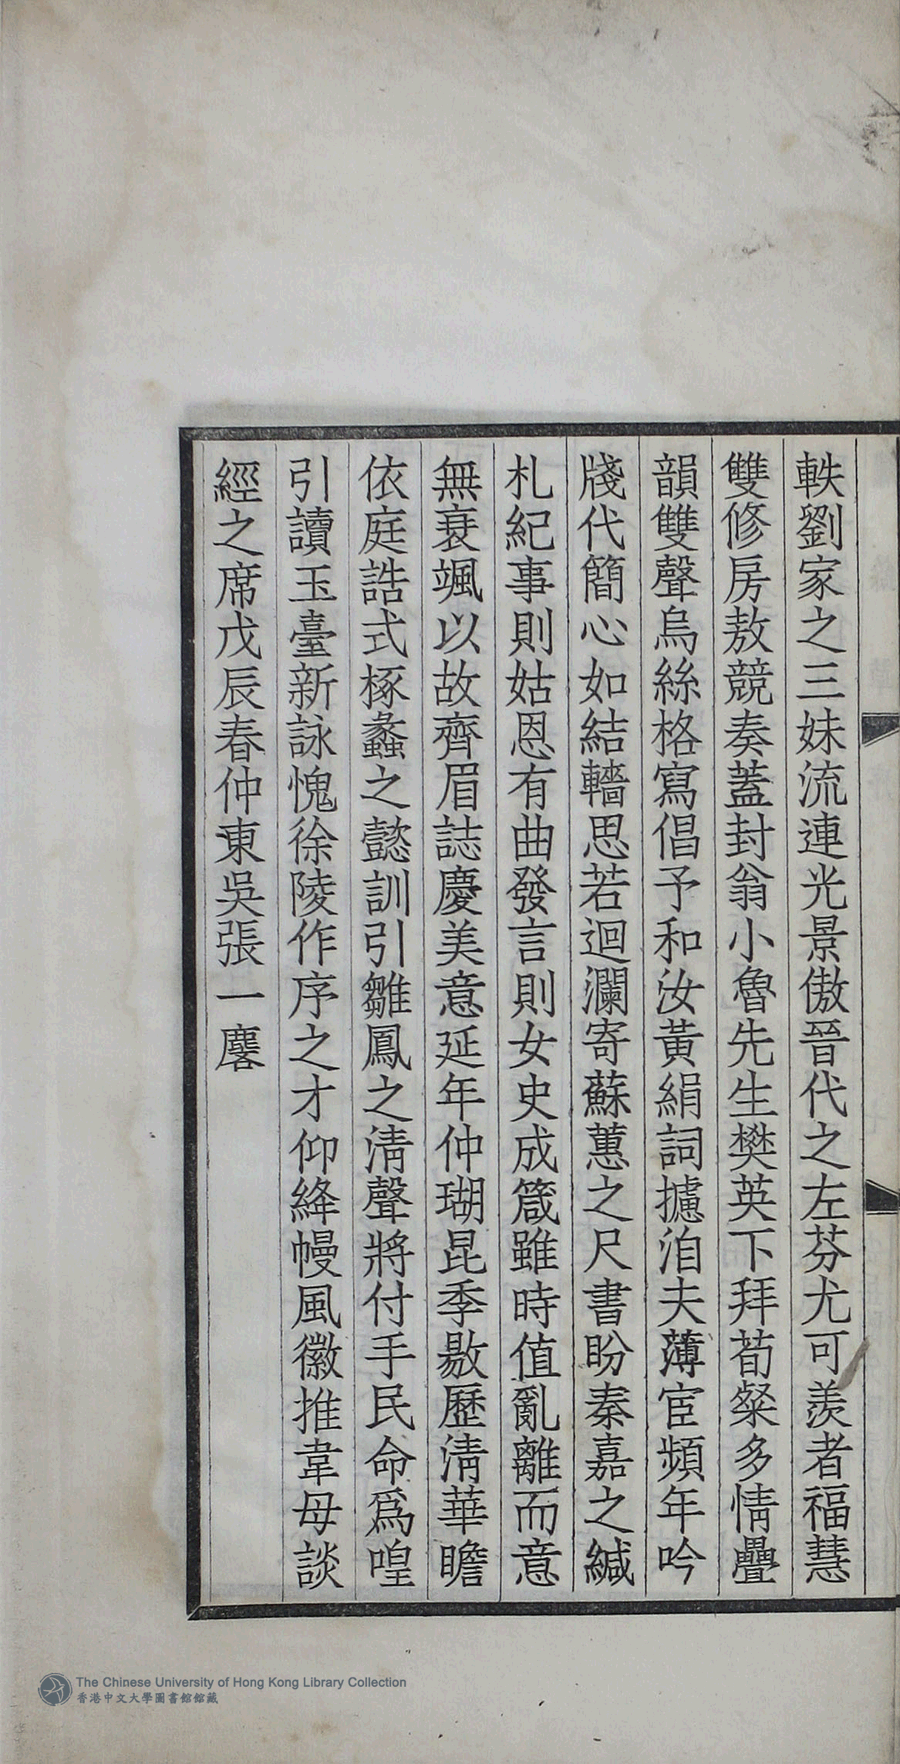 軼劉家之三妹流連光景傲晉代之左芬尤可羨者福慧
雙修房敖競奏蓋封翁小魯先生樊英下拜荀粲多情疊
韻雙聲烏絲格寫倡予和汝黃絹詞攄洎夫薄宦頻年吟
牋代簡心如結轖思若迴瀾寄蘇蕙之尺書盼秦嘉之緘
札紀事則姑恩有曲發言則女史成箴雖時值亂離而意
無衰颯以故齊眉誌慶美意延年仲瑚昆季敭歷清華瞻
依庭誥式椓蠡之懿訓引雛鳳之清聲將付手民命爲喤
引讀玉臺新詠愧徐陵作序之才仰絳幔風徽推韋母談
經之席戊辰春仲東吳張一麐
The Chinese University of Hong Kong Library Collection
香港中文大學圖書館館藏